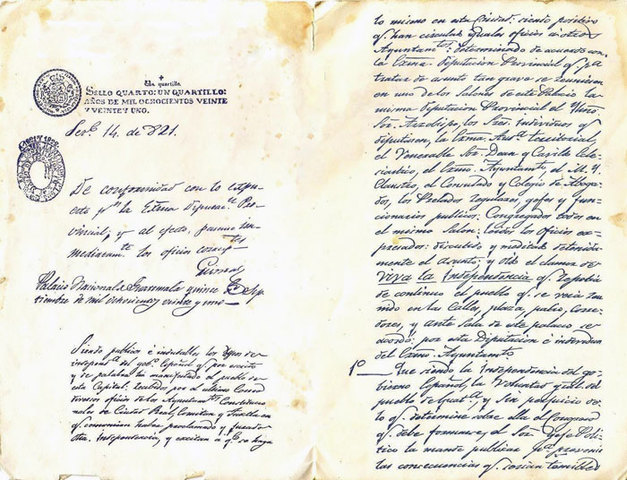 Un quartillo
SELLO QUARTO: UN QUARTILLO:
AÑOS DE MIL OCHOCIENTOS VEINTE
Y VEINTE Y UNO.
14. de 821.
De conformidad con lo espu-
esto pr. la Exma Diputacn. Pro-
vincial, y al efecto, puence in-
mediatamte. los oficios
Palacio Nacional de Guatemala quince de Sep-
tiembre de mil ochocientos veinte y uno
Siendo publicos é indudables los deseos de
independa. del gobo. Español qe. por escrito
y de palabra ha manifestado el pueblo de
esta Capital: recibidos por el ultimo Correo
diversos oficios de los Ayuntamtos. Constitucio-
nales de Ciudad Real, Comitan y Tuxtla en
qe. comunican haber proclamado y jurado
dha. independencia, y excitan a qe. se haga
lo mismo en esta Ciudad: siendo positivo
qe. han circulado iguales oficios á otros
Ayuntamtos.: determinado de acuerdo con
la Exma. Diputacion Provincial qe. pa.
tratar de asunto tan grave se reuniesen
en uno de los Salones de este Palacio la
misma Diputacion Provincial el Illmo
Sor. Arzobispo, los Sres. individuos qe.
diputasen, la Exma. Auda. territorial,
el Venerable Sor. Dean y Cavildo Ecle-
siastico, el Exmo. Ayuntamto. el M. Y.
Claustro, el Consulado y Colegio de Aboga-
dos, los Prelados regulares, gefes y fun-
cionarios publicos: Congregados todos en
el mismo Salon: leidos los oficios ex-
presados: discutido y meditado detenida-
mente el asunto; y oido el clamor de
Viva la Independencia qe. repetia
de continuo el pueblo qe. se veia reu-
nido en las Calles, plaza, patio, Corre-
dores, y ante Sala de este palacio se
acordó: por esta Diputacion é individuos
del Exmo. Ayuntamto.
1º Que siendo la Independencia del go-
bierno Español, la Voluntad gral. del
pueblo de Guata. y sin perjuicio de
lo qe. determine sobre ella el Congreso
qe. debe formarse, el Sor. Gefe Poli-
tico la mande publicar pa. prevenir
las consecuencias qe. serian temibles